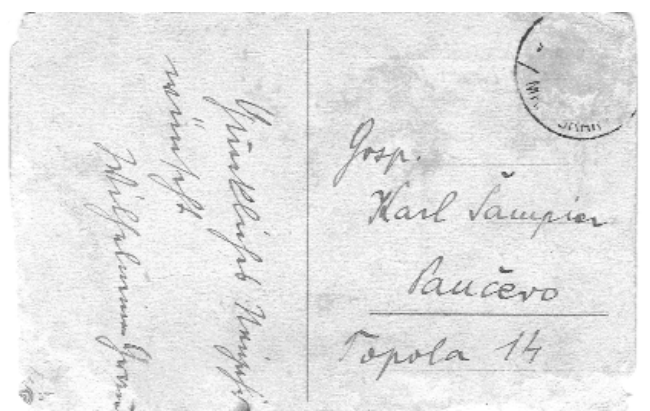 Glückliches Neujahr
wünscht
Wilhelmine
Gosp.
Karl Šampier
Pančevo
Topola 14